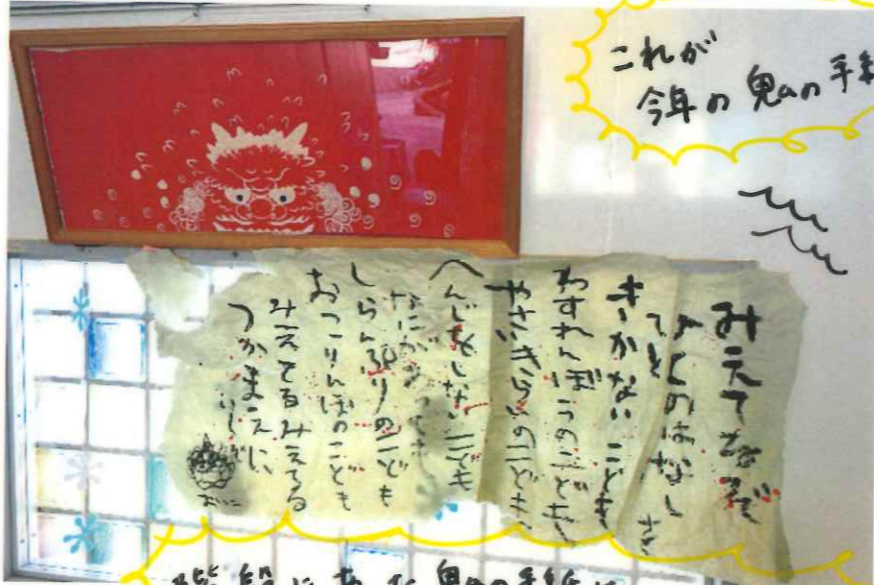 これが
今年の鬼の手
みえてるぞ
ひとのはなし
きかないこども
わすれんぼうのこども
やさいきらいのこども
へんじをしないこども
しらんぷりのこども
おこりんぼのこども
みえてるみえてる
つかまえに
おに
鬼の手紙に